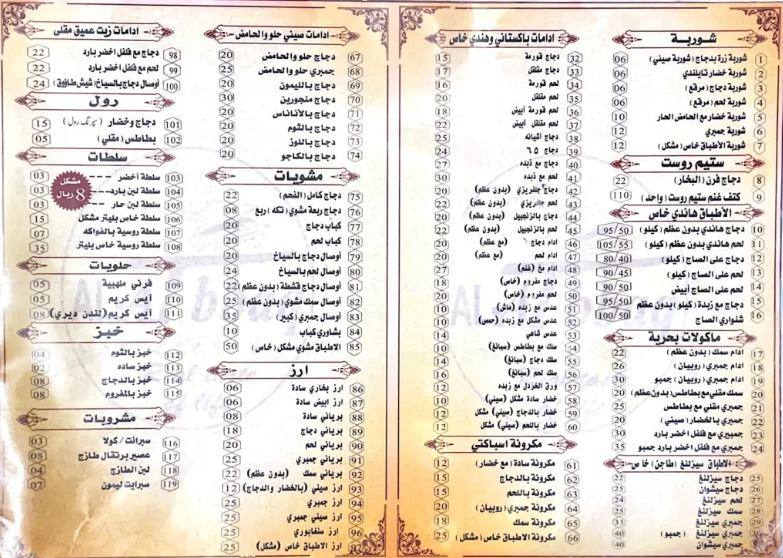 شوربة
1 شوربة ذرة بدجاج (شوربة صيني) 06
2 شوربة خضار تايلندي 06
3 شوربة دجاج (مرقع) 06
4 شوربة لحم (مرقع) 06
5 شوربة خضار مع الحامض الحار 10
6 شوربة جمبري 12
7 شوربة الأطباق خاص (مشكل) 12
ستيم روست
8 دجاج فرن (البخار) 22
9 كتف غنم ستيم روست (واحد) 110
الأطباق هاندي خاص
10 دجاج هاندي بدون عظم (كيلو) 95/50
11 لحم هاندي بدون عظم (كيلو) 105/55
12 دجاج على الصاج (كيلو) 80/40
13 لحم على الصاج (كيلو) 90/45
14 لحم على الصاج أبيض 90/50
15 دجاج مع زبدة (كيلو) بدون عظم 95/50
16 شنواري الصاج 100/50
ماكولات بحرية
17 ادام سمك (بدون عظم) 22
18 ادام جمبري (روبيان) 26
19 ادام جمبري (روبيان) جمبو 30
20 سمك مقلي مع بطاطس (بدون عظم) 20
21 جمبري مقلي مع بطاطس 25
22 جمبري بالخضار (صيني) 20
23 جمبري مع فلفل اخضر بارد 30
24 جمبري مع فلفل اخضر بارد جمبو 35
الاطباق سيزلنغ (طاجن) خاص
25 دجاج سيزلنغ 22
26 دجاج سيشوان 25
27 لحم سيزلنغ 24
28 سمك سيزلنغ 25
جمبري سيزلنغ
جمبري سيزلنغ (جمبو) 40
جمبري سيشوان 40
ادامات باكستاني وهندي خاص
32 دجاج قورمة 15
33 دجاج مقلقل 17
34 لحم قورمة 16
35 لحم مقلقل 20
36 لحم قورمة أبيض 18
37 لحم مقلقل أبيض 22
38 دجاج أشيانه 25
39 دجاج ٦٥ 24
40 دجاج مع زبده 27
41 لحم مع زبده 30
42 دجاج جلفريزي (بدون عظم) 20
43 لحم جالفريزي (بدون عظم) 22
44 دجاج بالزنجبيل (بدون عظم) 20
45 لحم بالزنجبيل (بدون عظم) 22
46 ادام دجاج (مع عظم) 20
47 ادام لحم (مع عظم) 22
48 ادام مخ (غنم) 27
49 دجاج مفروم (خاص) 18
50 لحم مفروم (خاص) 20
51 عدس مع زبده (ماش) 10
52 عدس مشكل مع زبده (حمس) 10
53 عدس شاهي 14
54 سلك مع بطاطس (سبانغ) 10
55 سلك دجاج (سبانغ) 14
56 سلك لحم (سبانغ) 16
57 ورق الخردل مع زبده 12
58 خضار سادة مشكل (صيني) 10
59 خضار بالدجاج (صيني) مشكل 12
60 خضار باللحم (صيني) مشكل 12
مكرونة اسباكتي
61 مكرونة سادة (مع خضار) 12
62 مكرونة بالدجاج 15
63 مكرونة باللحم 15
64 مكرونة جمبري (روبيان) 20
65 مكرونة سمك 18
66 مكرونة الاطباق خاص (مشكل) 25
ادامات صيني حلو والحامض
67 دجاج حلو والحامض 20
68 جمبري حلو والحامض 25
69 دجاج بالليمون 20
70 دجاج منجورين 30
71 دجاج بالأناناس 20
72 دجاج بالثوم 20
73 دجاج باللوز 20
74 دجاج بالكاجو 20
مشويات
75 دجاج كامل (الفحم) 22
76 دجاج ربعة مشوي (تكه) ربع 08
77 كباب دجاج 20
78 كباب لحم 20
79 أوصال دجاج بالسياخ 20
80 أوصال لحم بالسياخ 24
81 أوصال دجاج قشطة (بدون عظم) 22
82 أوصال سمك مشوي (بدون عظم) 25
83 أوصال جمبري (كبير) 35
84 بشاوري كباب 10
85 الاطباق مشوي مشكل (خاص) 50
ارز
86 ارز بخاري سادة 06
87 ارز ابيض سادة 06
88 برياني سادة 08
89 برياني دجاج 18
90 برياني لحم 20
91 برياني جمبري 25
92 برياني سمك (بدون عظم) 22
93 ارز صيني (بالخضار والدجاج) 12
94 ارز جمبري 25
95 ارز صيني جمبري 25
96 ارز سنغابوري 25
97 ارز الاطباق خاص (مشكل) 25
ادامات زيت عميق مقلى
98 دجاج مع فلفل اخضر بارد 22
99 لحم مع فلفل اخضر بارد 22
100 أوصال دجاج بالسياخ (شيش طاووق) 24
رول
101 دجاج وخضار (سبرنگ رول) 15
102 بطاطس (مقلي) 05
سلطات
103 سلطة أخضر 03
104 سلطة لبن بارد 03
105 سلطة لبن حار 03
مشكل 8 ريال
106 سلطة خاص بليتر مشكل 15
107 سلطة روسية بالفواكه 07
108 سلطة روسية خاص بليتر 35
حلويات
109 فرني ملهبية 05
110 آيس كريم 05
111 آيس كريم (لندن ديري) 08
خبز
112 خبز بالثوم 04
113 خبز ساده 02
114 خبز بالدجاج 08
115 خبز بالمفروم 08
مشروبات
116 سبرائت / كولا 03
117 عصير برتقال طازج 08
118 لبن الطازج 04
119 سبرايت ليمون 07